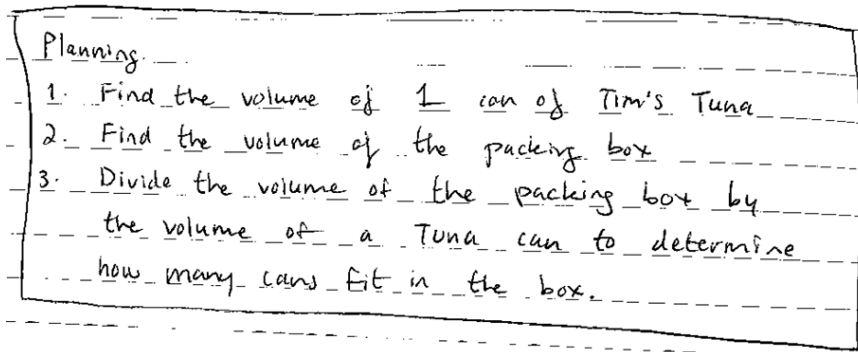 Planning.
1. Find the volume of 1 can of Tim's Tuna
2. Find the volume of the packing box
3. Divide the volume of the packing box by
the volume of a Tuna can to determine
how many cans fit in the box.